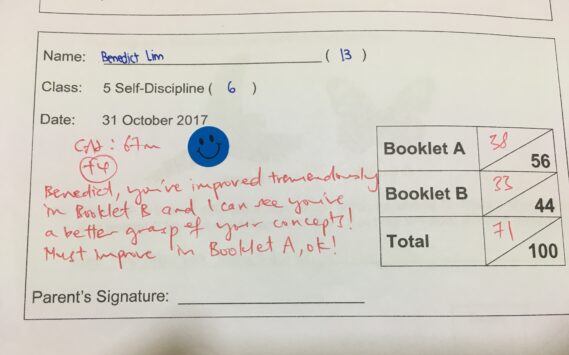 Name: Benedict Lim ( 13 )
Class: 5 Self-Discipline ( 6 )
Date: 31 October 2017
CA1: 67m
+4
Benedict, you've improved tremendously
in Booklet B and I can see you've
a better grasp of your concepts!
Must improve in Booklet A, ok!
Booklet A 38 56
Booklet B 33 44
Total 71 100
Parent's Signature: